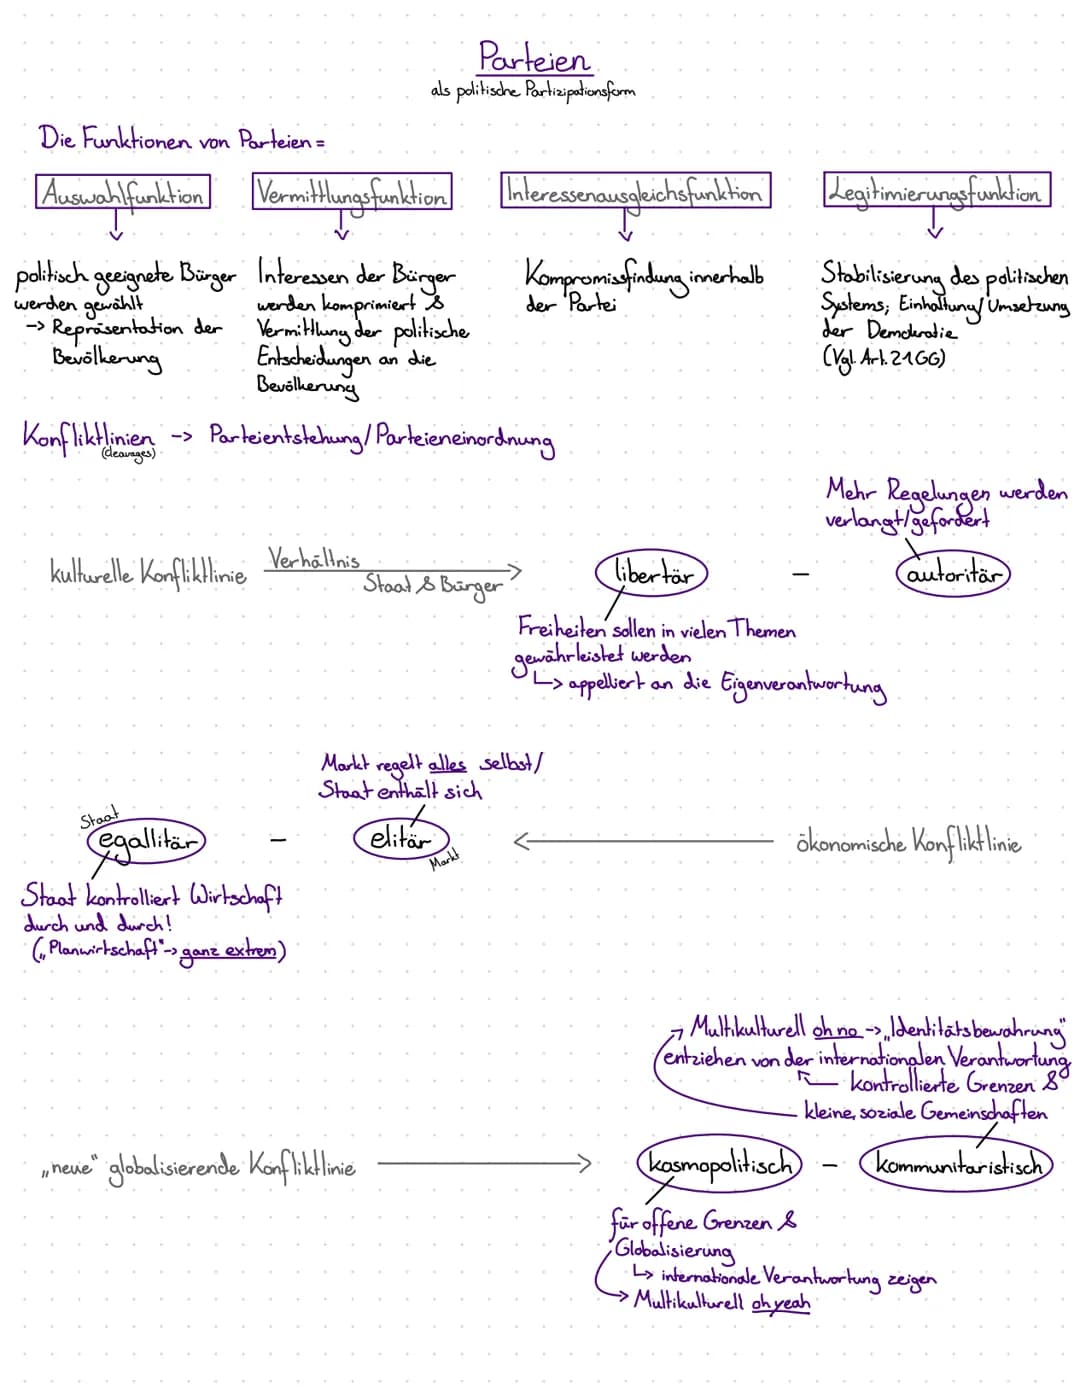 Parteien
als politische Partizipationsform
Die Funktionen von Parteien =
Auswahlfunktion
Vermittlungsfunktion
Interessenausgleichsfunktion
Legitimierungsfunktion
politisch geeignete Bürger
werden gewählt
-> Repräsentation der
Bevölkerung
Interessen der Bürger
werden komprimiert &
Vermittlung der politische
Entscheidungen an die
Bevölkerung
Kompromissfindung innerhalb
der Partei
Stabilisierung des politischen
Systems; Einhaltung/Umsetzung
der Demokratie
(Vgl. Art. 21 GG)
Konfliktlinien -> Parteientstehung/Parteieneinordnung
(cleavages)
Mehr Regelungen werden
verlangt/gefordert
kulturelle Konfliktlinie
Verhältnis
Staat & Bürger
libertär - autoritär
Freiheiten sollen in vielen Themen
gewährleistet werden
↳ appelliert an die Eigenverantwortung
Markt regelt alles selbst/
Staat enthält sich
Staat
egallitär - elitär
Markt
ökonomische Konfliktlinie
Staat kontrolliert Wirtschaft
durch und durch!
(„Planwirtschaft"-> ganz extrem)
Multikulturell oh no -> „Identitätsbewahrung"
entziehen von der internationalen Verantwortung
kontrollierte Grenzen &
kleine, soziale Gemeinschaften
„neue" globalisierende Konfliktlinie
kosmopolitisch - kommunitaristisch
für offene Grenzen &
Globalisierung
↳ internationale Verantwortung zeigen
-> Multikulturell oh yeah